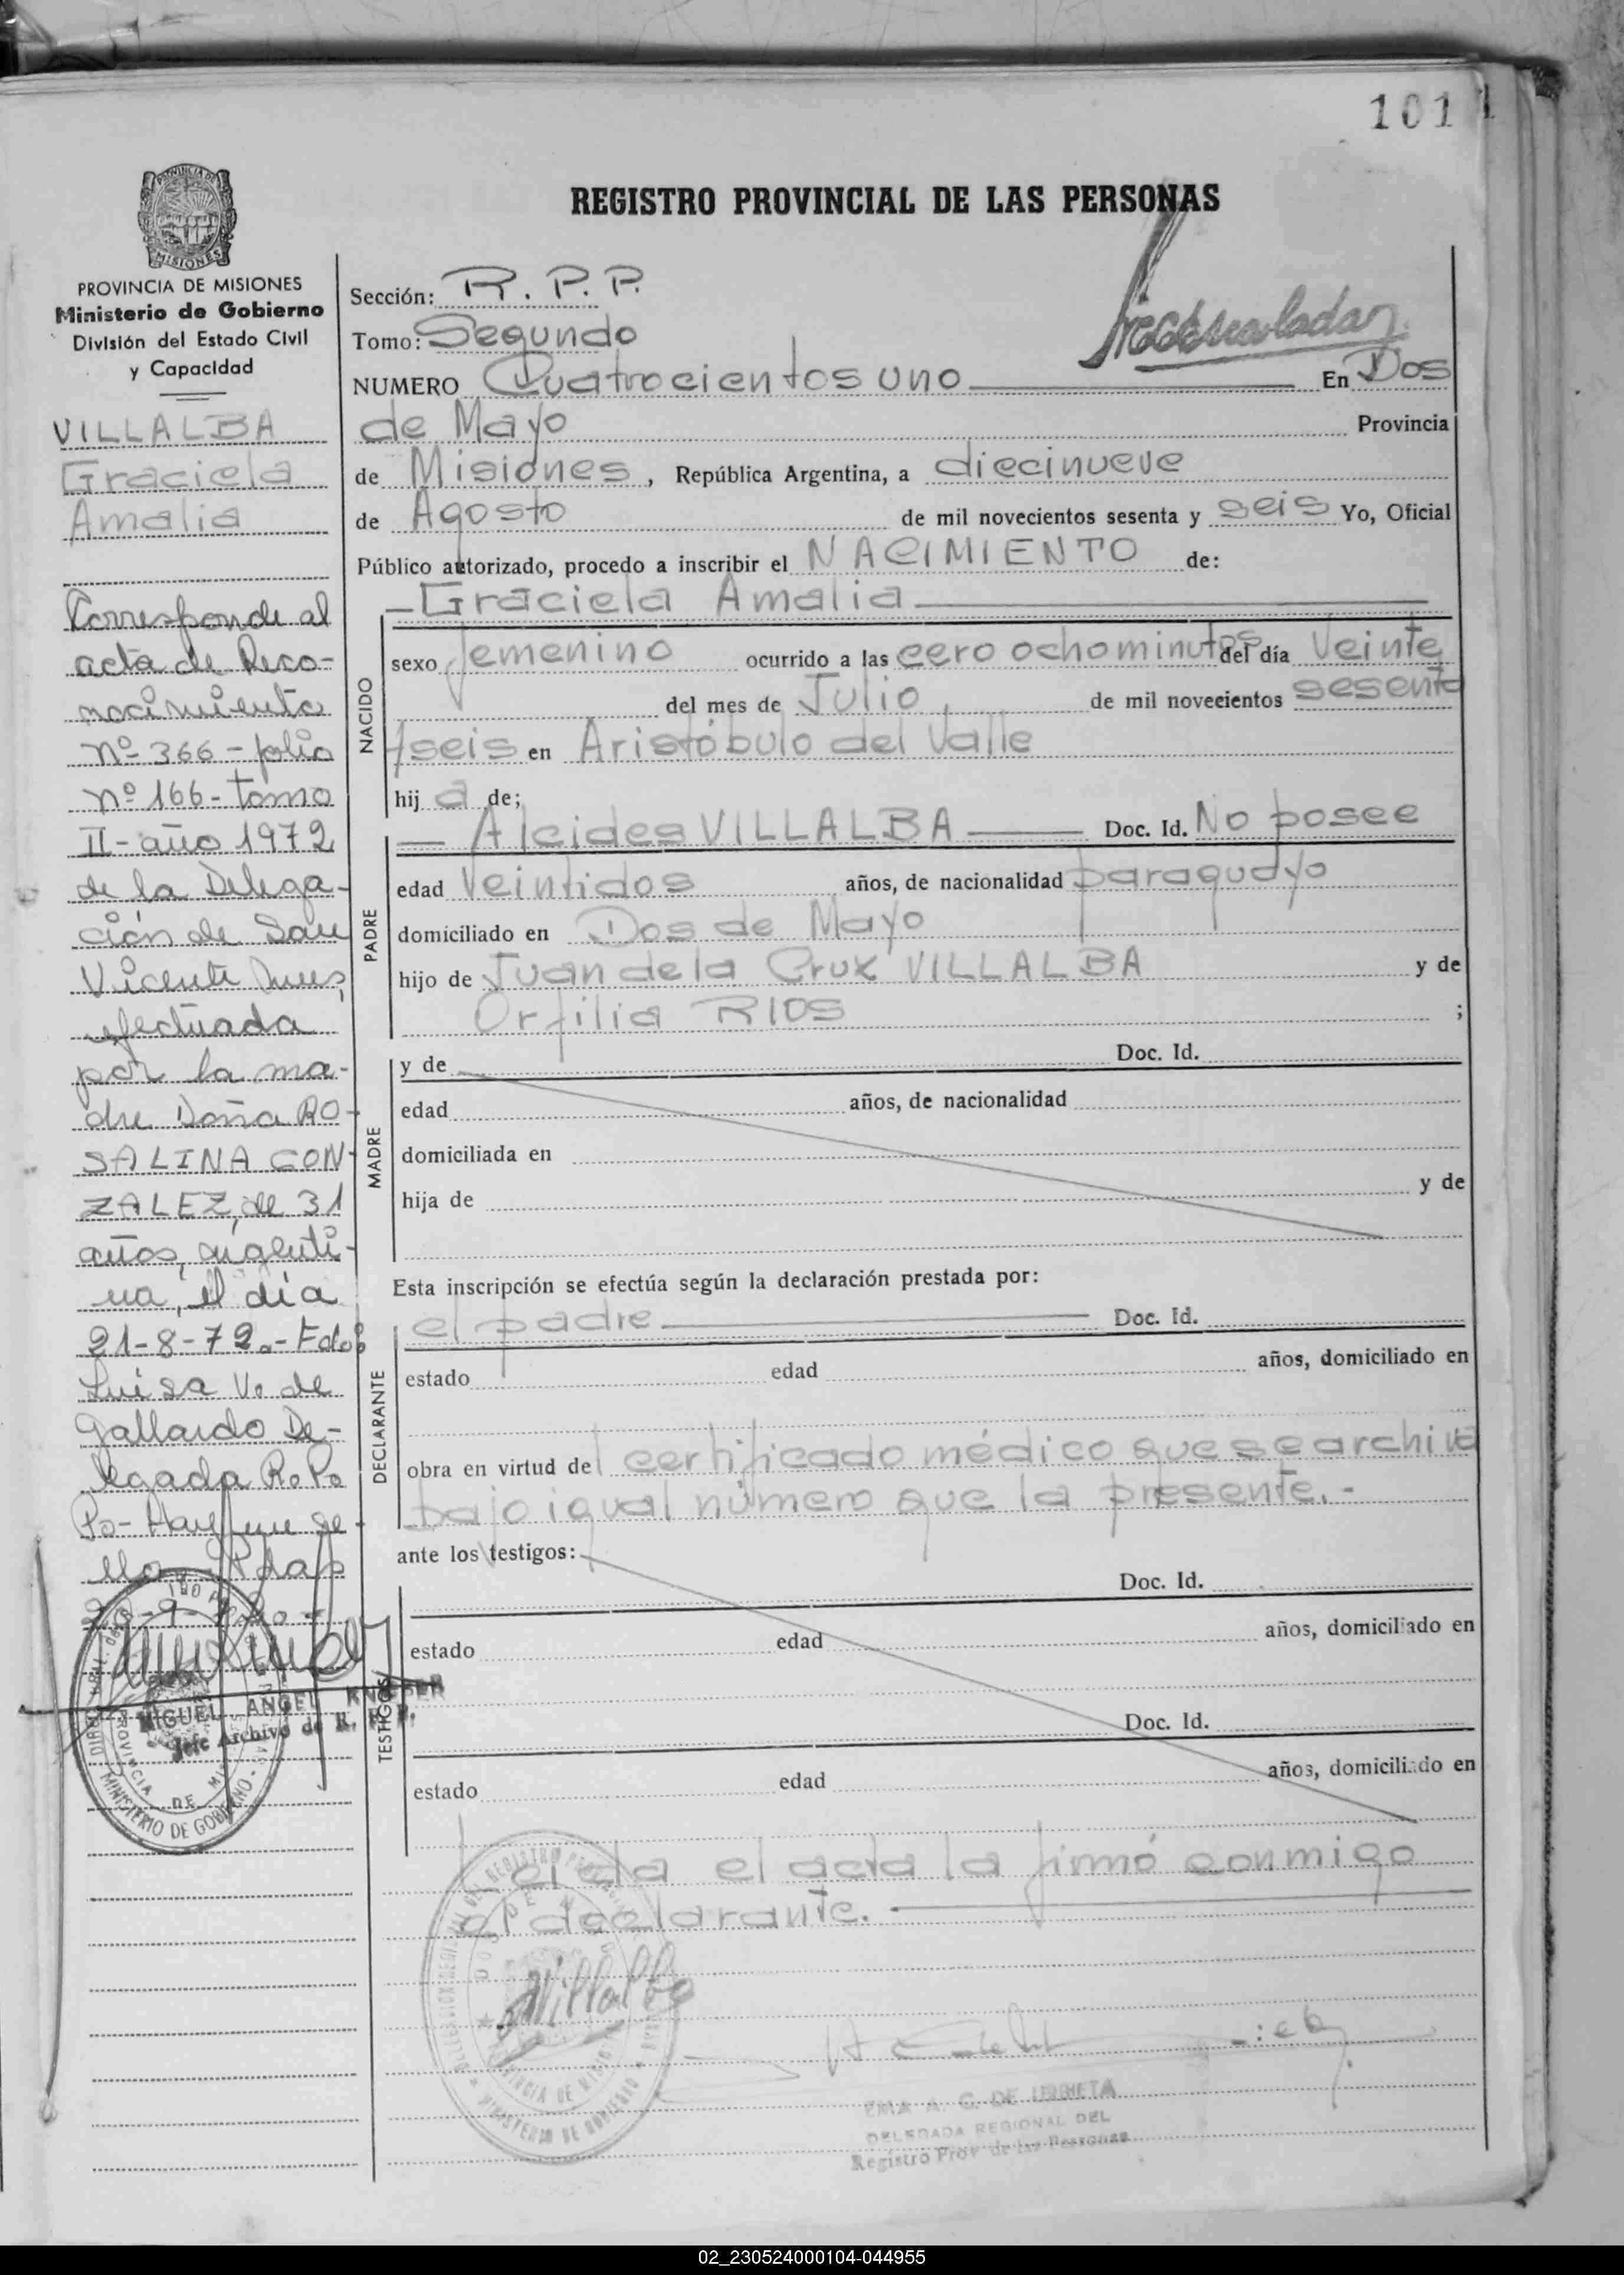 101
REGISTRO PROVINCIAL DE LAS PERSONAS
PROVINCIA DE MISIONES
Ministerio de Gobierno
División del Estado Civil
y Capacidad
VILLALBA
Graciela
Amalia
Corresponde al
acta de Reco-
nocimiento
Nº 366 - folio
Nº 166 - tomo
II - año 1972
de la Delega-
ción de San
Vicente Mnes,
efectuada
por la ma-
dre Doña RO-
SALINA GON-
ZALEZ, de 31
años, argenti-
na, el día
21-8-72.- Fdo:
Luisa V. de
Gallardo De-
legada R.P.
P.- Hay un se-
llo. Pdas
MIGUEL ANGEL
Jefe Archivo de R. P. P.
PROVINCIA DE
MINISTERIO DE GOBIERNO
Sección: R. P. P.
Tomo: Segundo
NUMERO Cuatrocientos uno En Dos
de Mayo Provincia
de Misiones, República Argentina, a diecinueve
de Agosto de mil novecientos sesenta y seis Yo, Oficial
Público autorizado, procedo a inscribir el NACIMIENTO de:
Graciela Amalia
NACIDO
sexo femenino ocurrido a las cero ocho minutos del día Veinte
del mes de Julio, de mil novecientos sesenta
y seis en Aristóbulo del Valle
hij a de;
PADRE
Alcides VILLALBA Doc. Id. No posee
edad Veintidos años, de nacionalidad paraguayo
domiciliado en Dos de Mayo
hijo de Juan de la Cruz VILLALBA y de
Orfilia RIOS ;
MADRE
y de Doc. Id.
edad años, de nacionalidad
domiciliada en
hija de y de
Esta inscripción se efectúa según la declaración prestada por:
DECLARANTE
el padre Doc. Id.
estado edad años, domiciliado en
obra en virtud del certificado médico que se archiva
bajo igual número que la presente.-
ante los testigos:
TESTIGOS
Doc. Id.
estado edad años, domiciliado en
Doc. Id.
estado edad años, domiciliado en
Leida el acta la firmó conmigo
el declarante.
Villalba
EMA A. G. DE URRIETA
DELEGADA REGIONAL DEL
Registro Prov. de las Personas
02_230524000104-044955